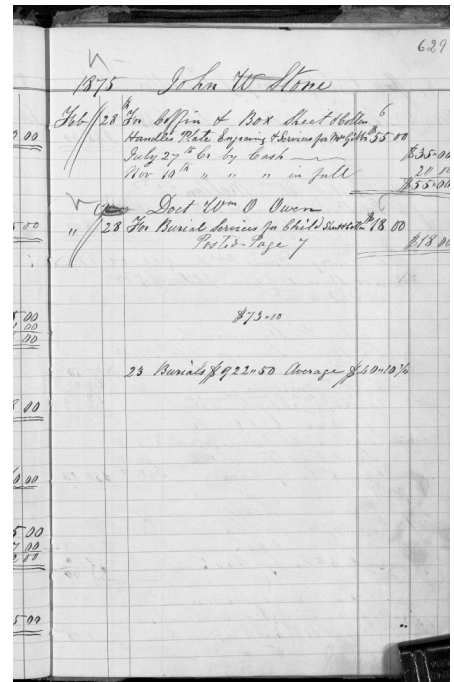 629
1875 John W Stone
Feb 28th For Coffin & Box Sheet & Cotten 6
Handles Plate Engraving & Services for Mrs $55 00
July 27th Cr by Cash $35 "00
Nov 10th " " " in full 20 00
$55 "00
Doct Wm O Owen 6
" 28 For Burial Services for Child Sheet & Cotten $18 00
Posted - Page 7 $18 00
$73 "00
23 Burials $922 "50 Average $40 "10
3 00
5 00
5 00
1 00
5 00
8 00
0 00
5 00
7 00
2 00
5 00